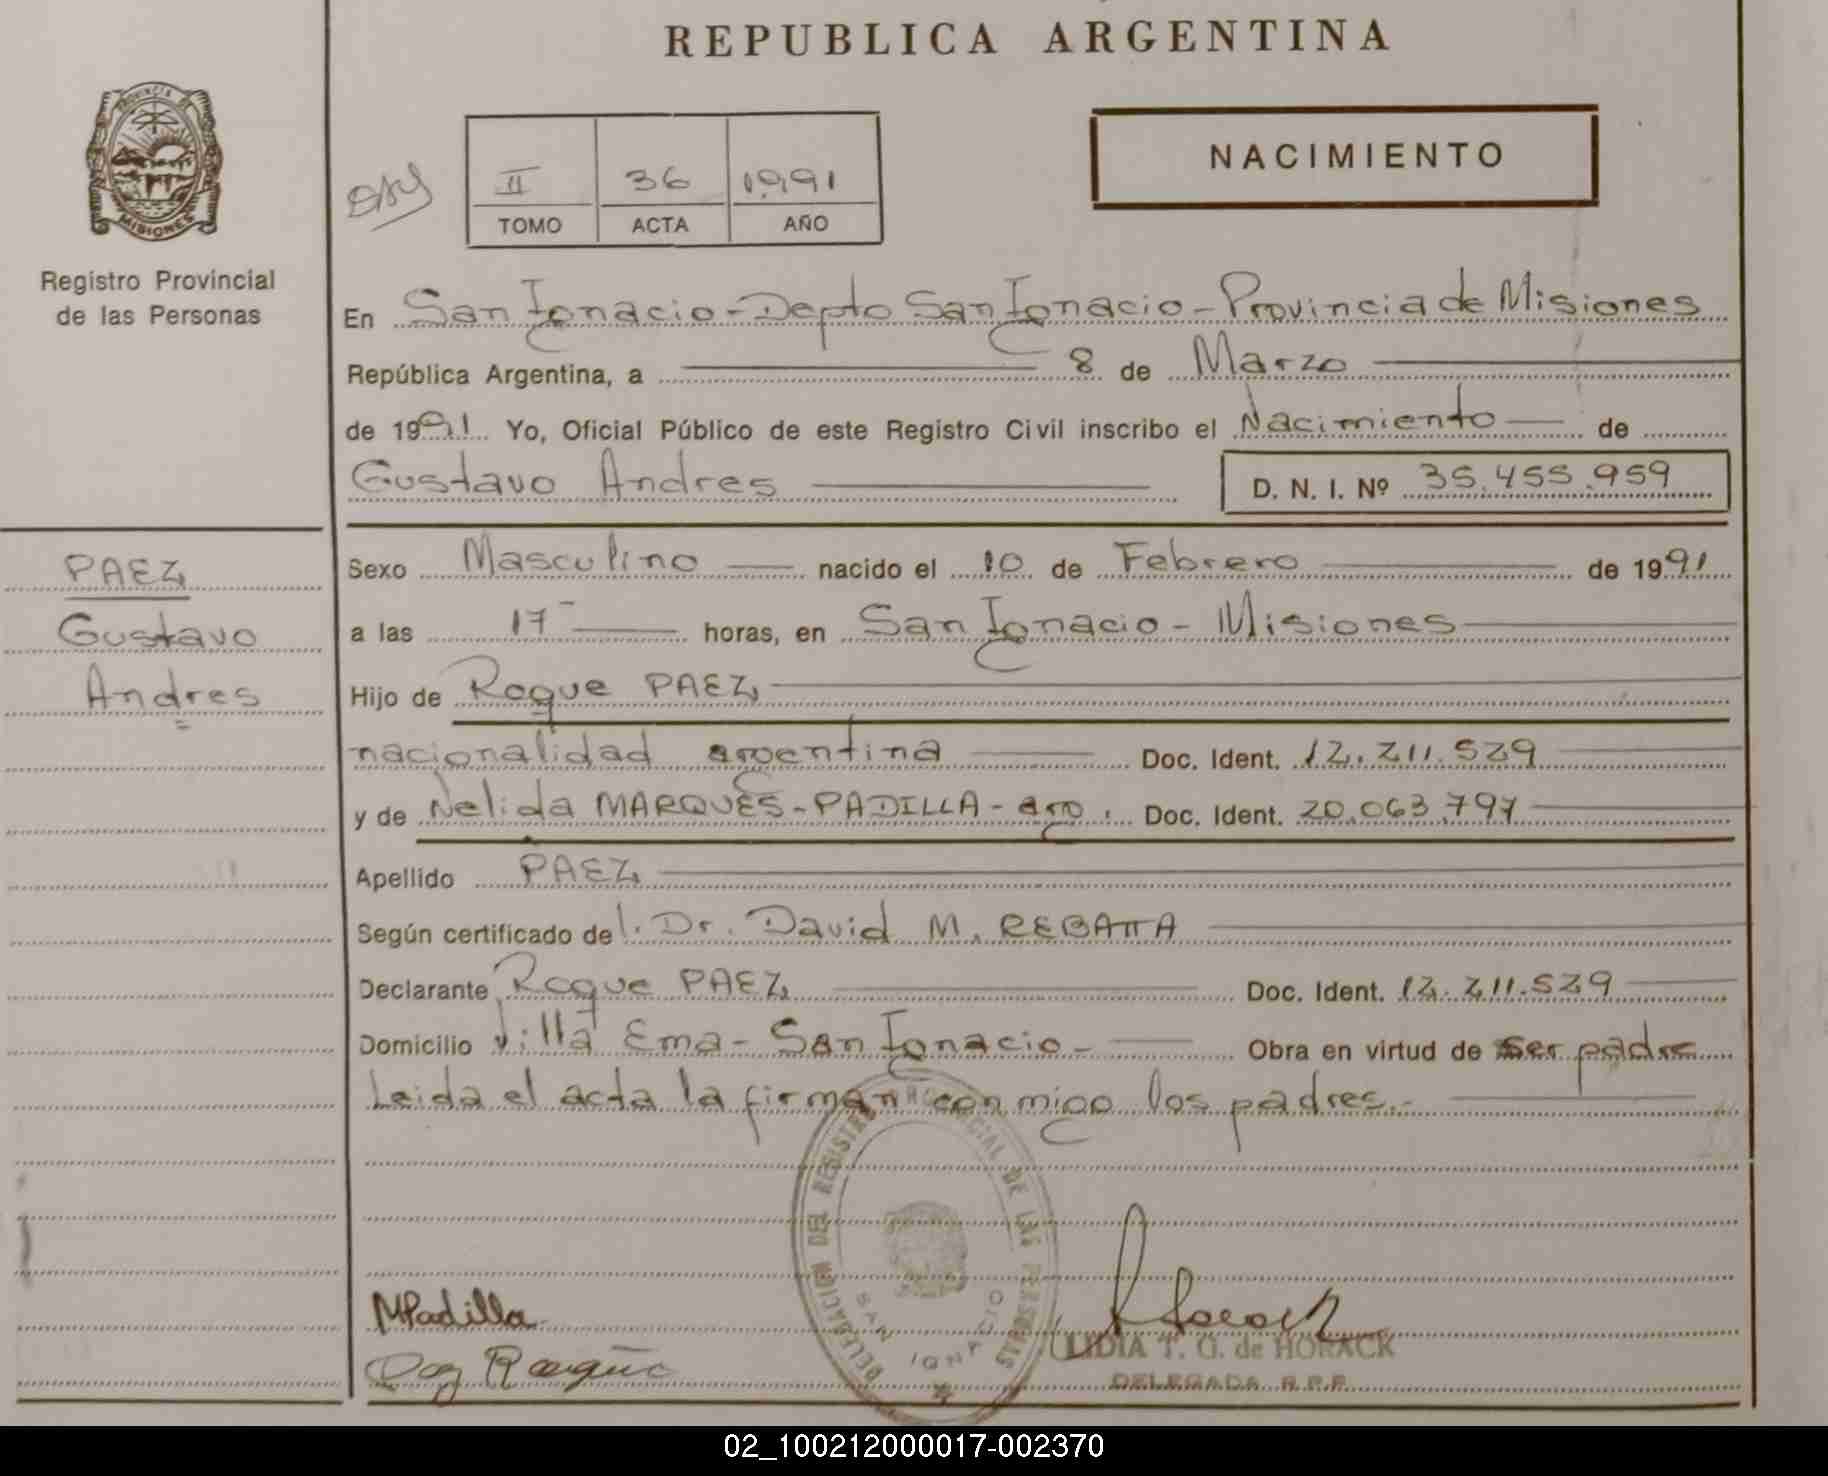 REPUBLICA ARGENTINA
PROVINCIA DE
MISIONES
Registro Provincial
de las Personas
II 36 1991
TOMO ACTA AÑO
NACIMIENTO
En San Ignacio - Depto San Ignacio - Provincia de Misiones
República Argentina, a 8 de Marzo
de 1991 Yo, Oficial Público de este Registro Civil inscribo el Nacimiento de
Gustavo Andres D. N. I. Nº 35.455.959
PAEZ
Gustavo
Andres
Sexo Masculino nacido el 10 de Febrero de 1991
a las 17 horas, en San Ignacio - Misiones
Hijo de Roque PAEZ
nacionalidad argentina Doc. Ident. 12.211.529
y de Nelida MARQUES - PADILLA - arg. Doc. Ident. 20.063.797
Apellido PAEZ
Según certificado del Dr. David M. REBATTA
Declarante Roque PAEZ Doc. Ident. 12.211.529
Domicilio Villa Ema - San Ignacio - Obra en virtud de ser padre
Leida el acta la firman conmigo los padres.-
DELEGACION DEL REGISTRO PROVINCIAL DE LAS PERSONAS
SAN IGNACIO
MPadilla
LIDIA T. G. de HORACK
DELEGADA R.P.P.
02_100212000017-002370